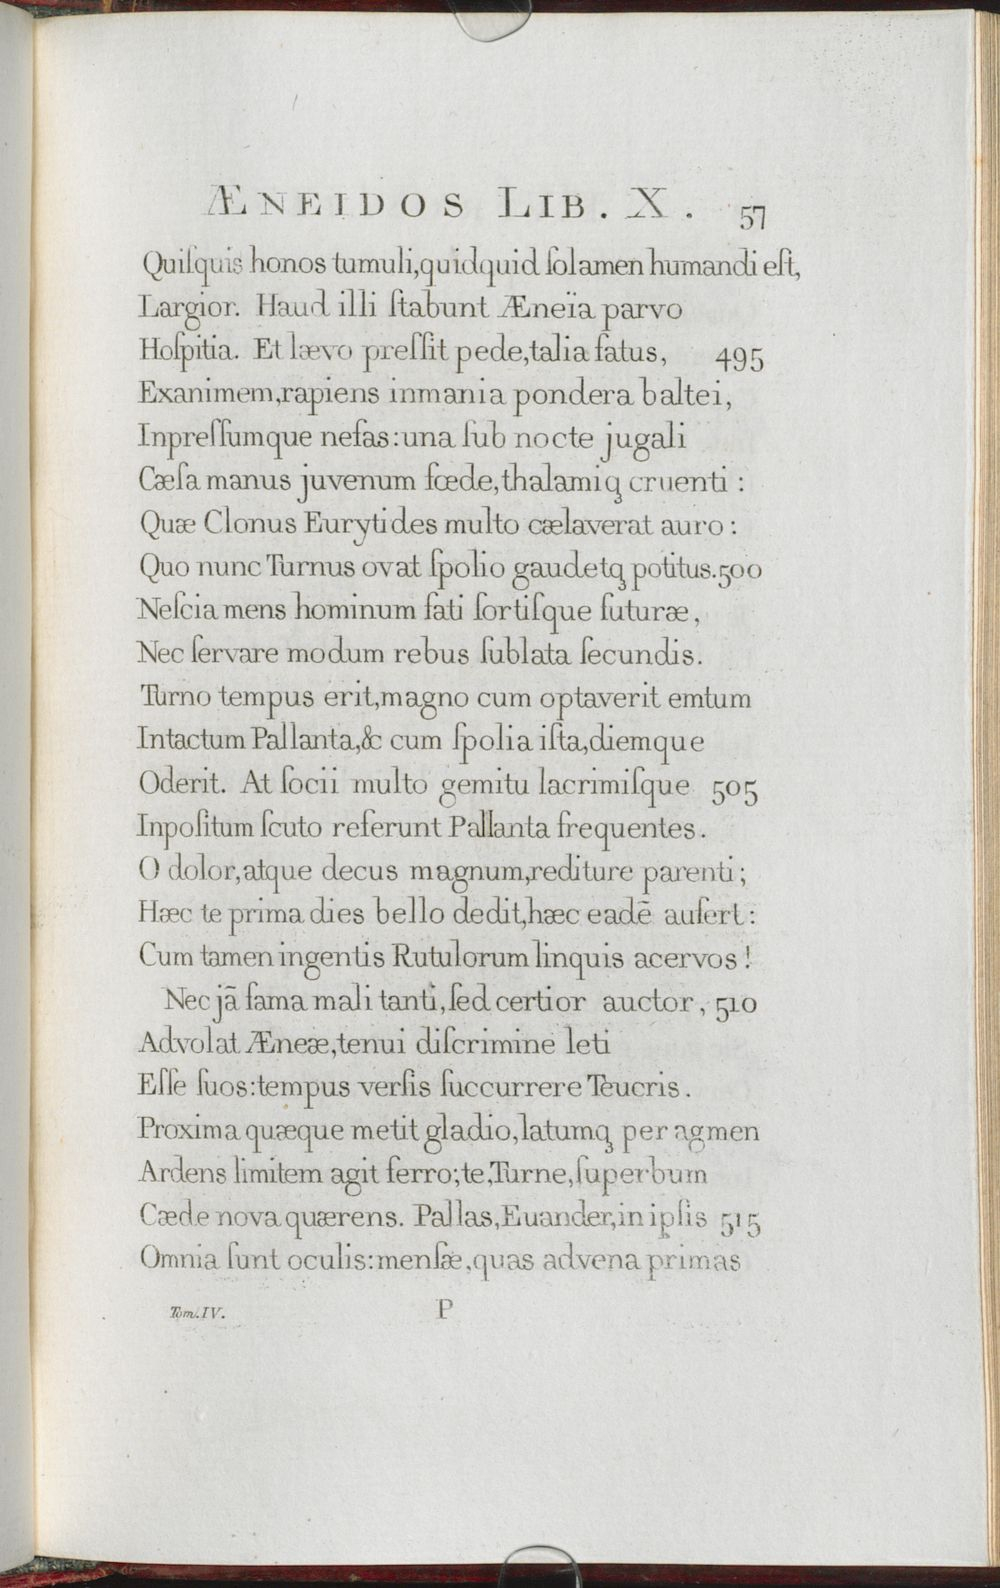 ÆNEIDOS LIB. X. 57
Quiſquis honos tumuli, quidquid ſolamen humandi eſt,
Largior. Haud illi ſtabunt Æneïa parvo
Hoſpitia. Et lævo preſſit pede, talia fatus, 495
Exanimem, rapiens inmania pondera baltei,
Inpreſſumque nefas: una ſub nocte jugali
Cæſa manus juvenum fœde, thalamiq̨ cruenti :
Quæ Clonus Eurytides multo cælaverat auro :
Quo nunc Turnus ovat ſpolio gaudetq̨ potitus. 500
Neſcia mens hominum fati ſortiſque futuræ,
Nec ſervare modum rebus ſublata ſecundis.
Turno tempus erit, magno cum optaverit emtum
Intactum Pallanta, & cum ſpolia iſta, diemque
Oderit. At ſocii multo gemitu lacrimiſque 505
Inpoſitum ſcuto referunt Pallanta frequentes.
O dolor, atque decus magnum, rediture parenti;
Hæc te prima dies bello dedit, hæc eadē aufert :
Cum tamen ingentis Rutulorum linquis acervos !
Nec jā fama mali tanti, ſed certior auctor, 510
Advolat Æneæ, tenui diſcrimine leti
Eſſe ſuos: tempus verſis ſuccurrere Teucris.
Proxima quæque metit gladio, latumq̨ per agmen
Ardens limitem agit ferro; te, Turne, ſuperbum
Cæde nova quærens. Pallas, Euander, in ipſis 515
Omnia ſunt oculis: menſæ, quas advena primas
Tom. IV. P